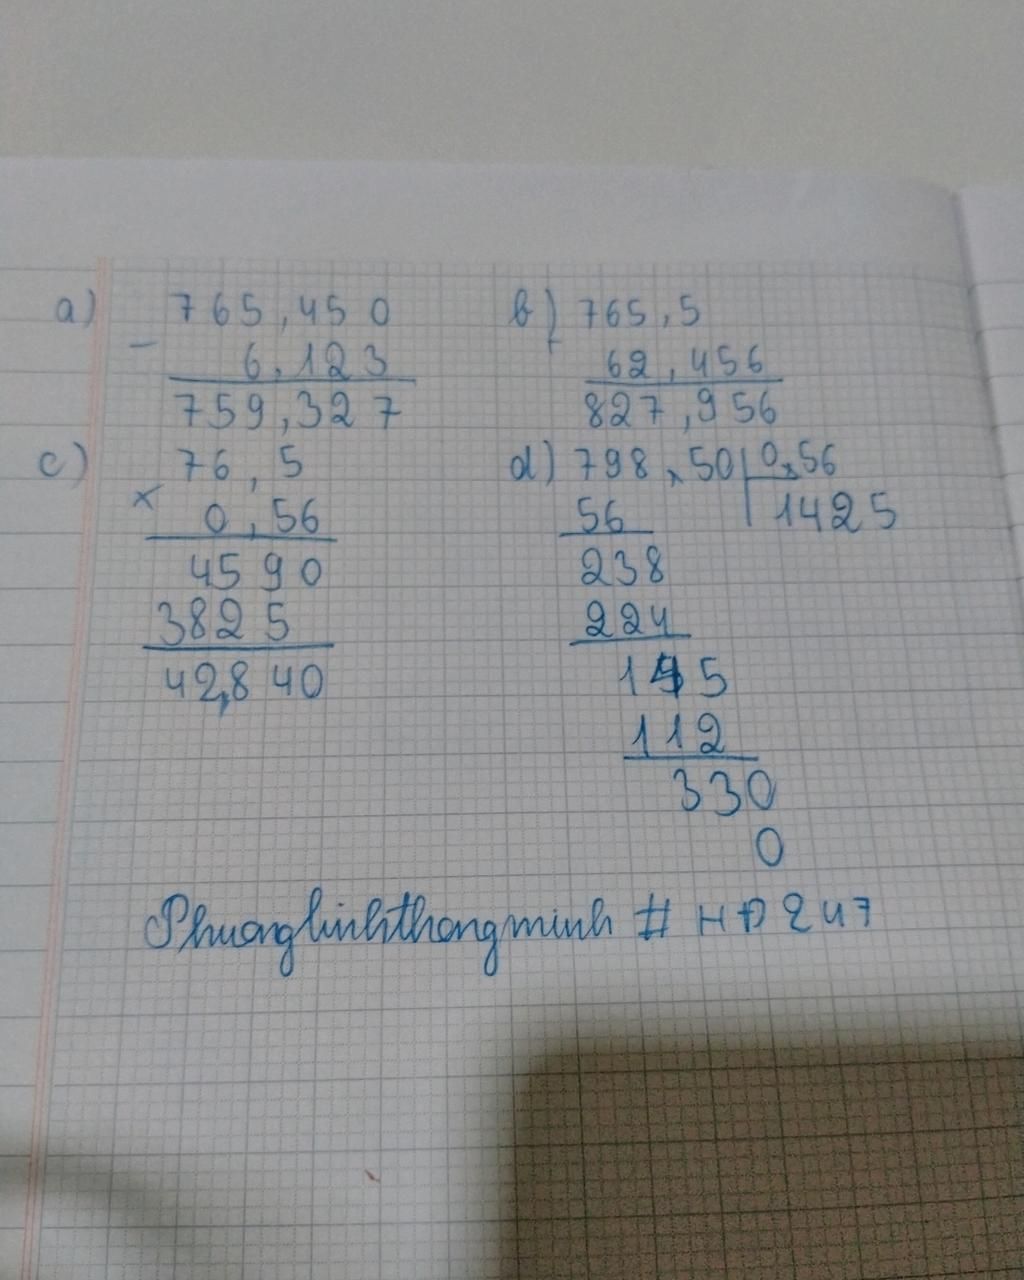 a) 765,450 b) 765,5
- 6,123 + 62,456
759,327 827,956
c) 76,5 d) 798,50 0,56
x 0,56 56 1425
4590 238
3825 224
42,840 145
112
330
0
Phuonglinhthongminh # HĐ247